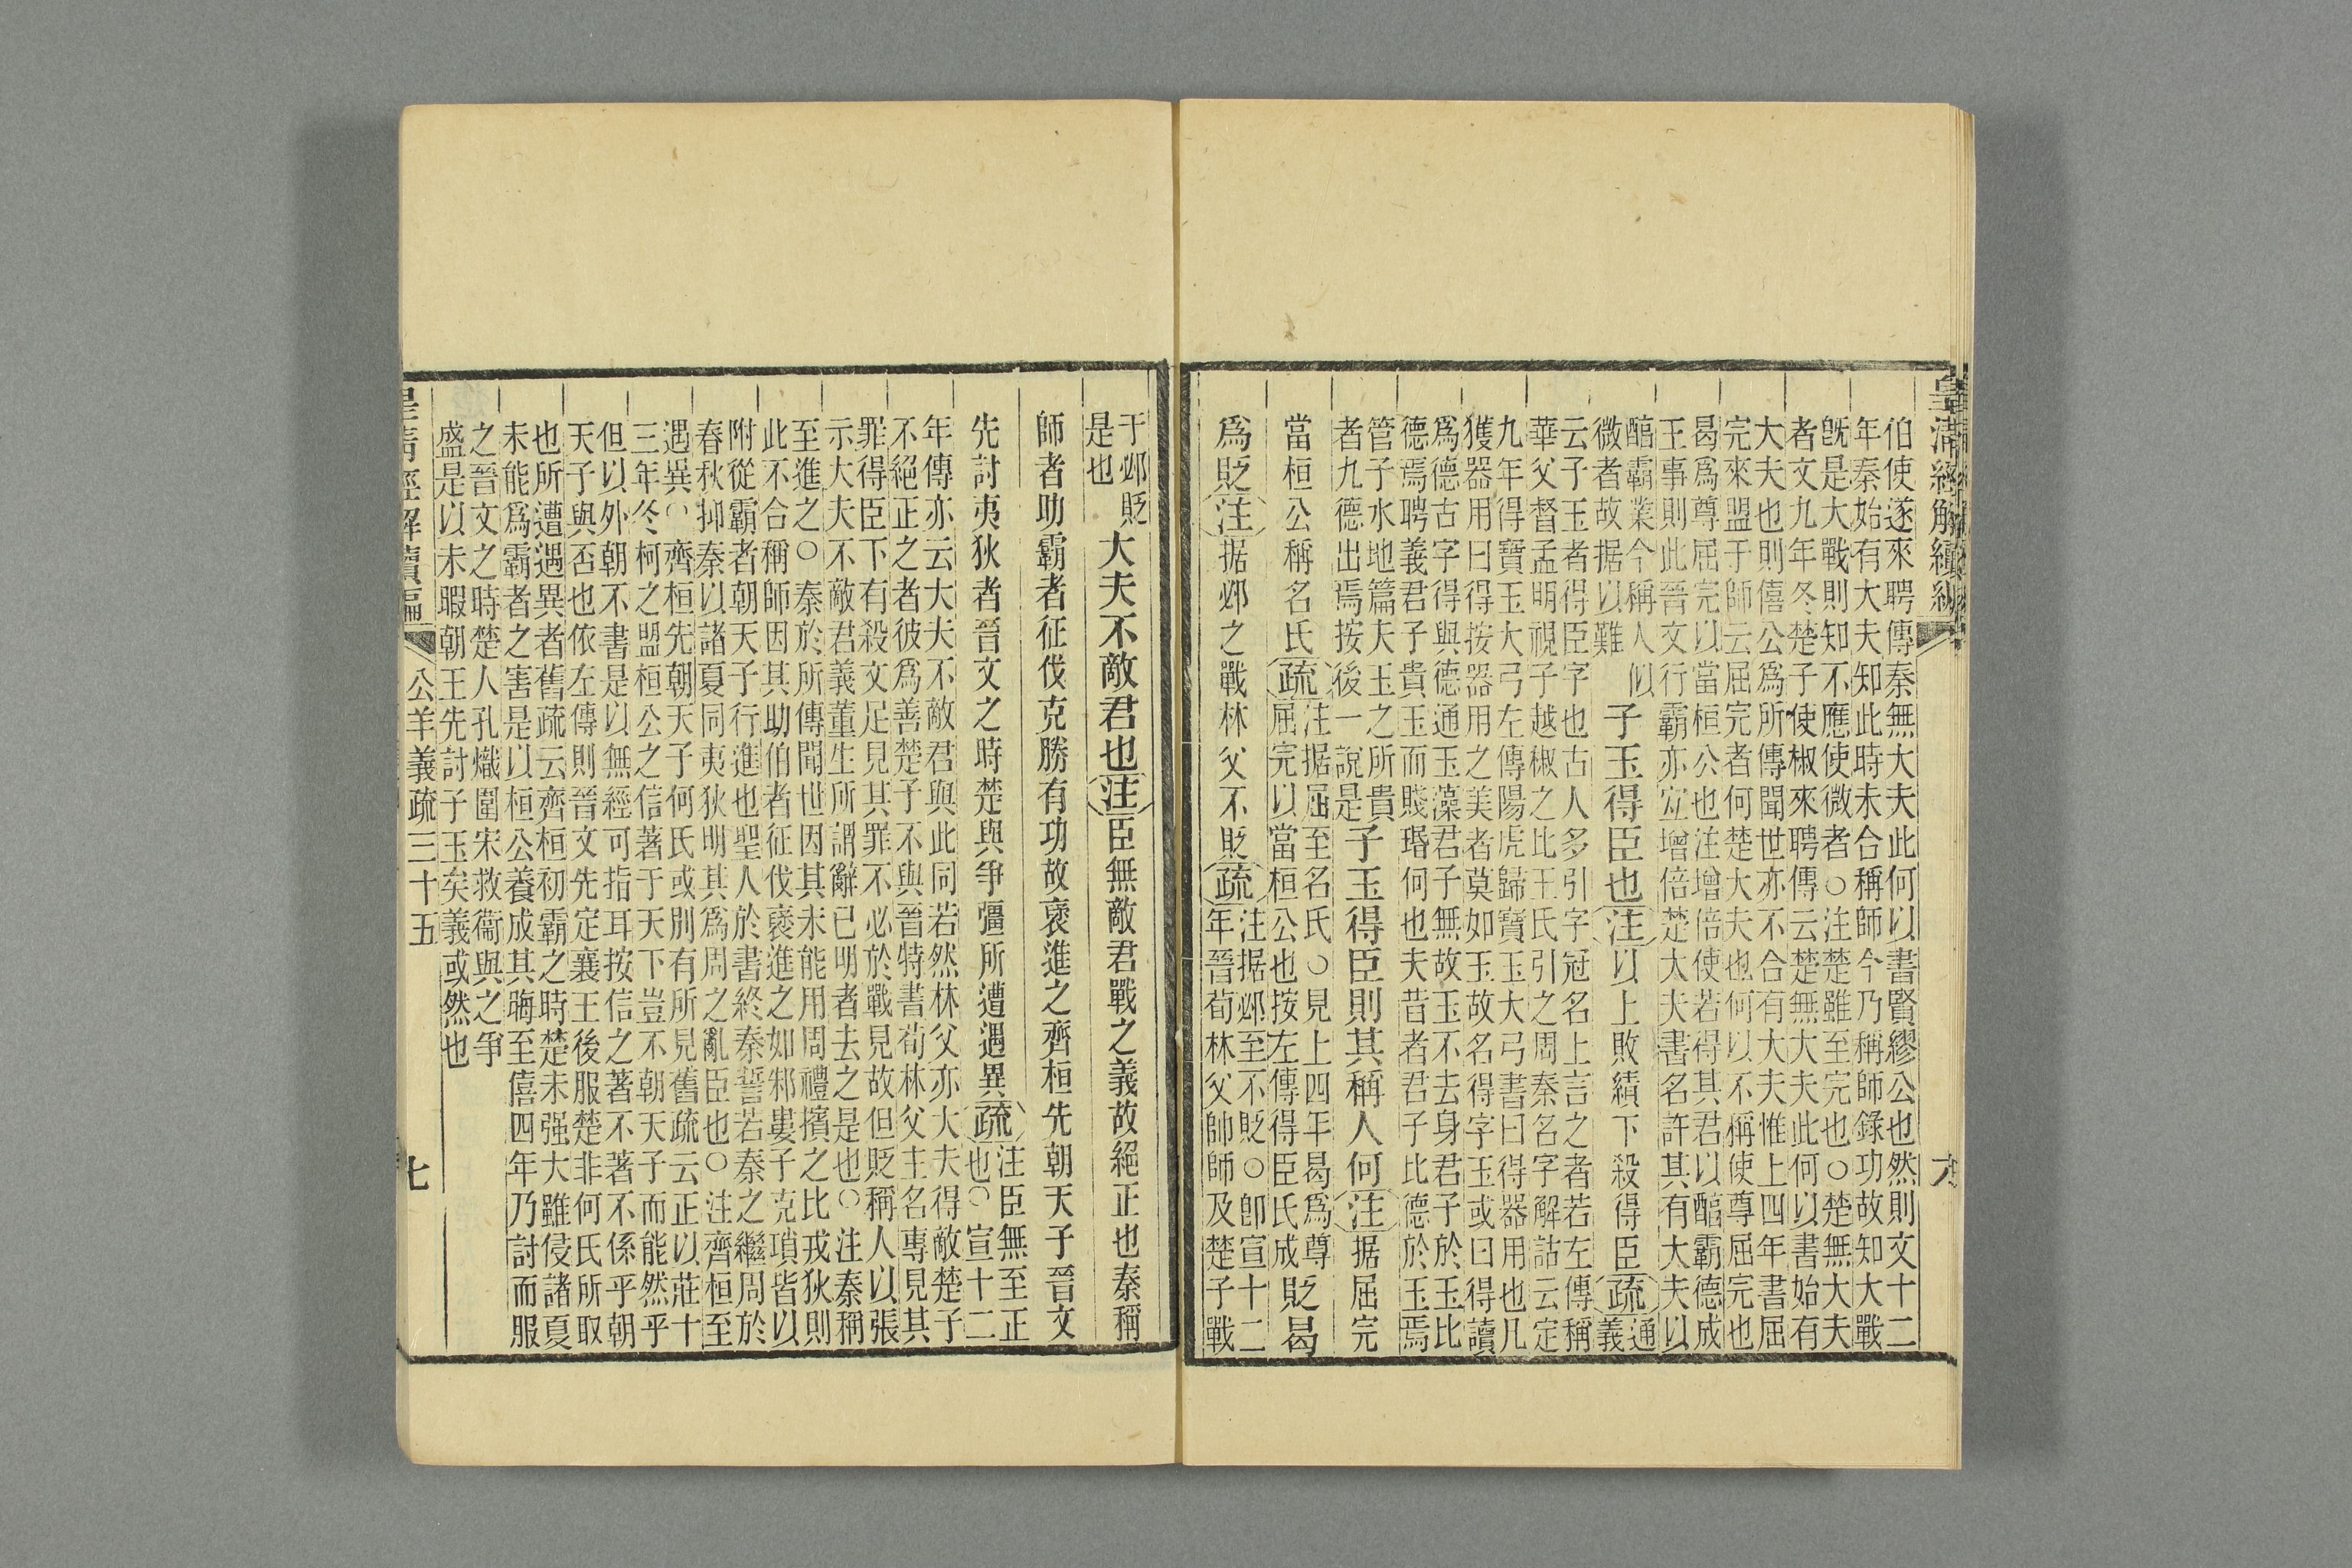 皇清經解續編
六
伯使遂來聘傳秦無大夫此何以書賢繆公也然則文十二
年秦始有大夫知此時未合稱師今乃稱師錄功故知大戰
旣是大戰則知不應使微者○注楚雖至完也○楚無大夫
者文九年冬楚子使椒來聘傳云楚無大夫此何以書始有
大夫也則僖公爲所傳聞世亦不合有大夫惟上四年書屈
完來盟于師云屈完者何楚大夫也何以不稱使尊屈完也
曷爲尊屈完以當桓公也注增倍使若得其君以醕霸德成
王事則此晉文行霸亦宜增倍楚大夫書名許其有大夫以
醕霸業今稱人似
微者故据以難
子玉得臣也注以上敗績下殺得臣疏
通
義
云子玉者得臣字也古人多引字冠名上言之者若左傳稱
華父督孟明視子越椒之比王氏引之周秦名字解詁云定
九年得寶玉大弓左傳陽虎歸寶玉大弓書曰得器用也凡
獲器用曰得按器用之美者莫如玉故名得字玉或曰得讀
爲德古字得與德通玉藻君子無故玉不去身君子於玉比
德焉聘義君子貴玉而賤珉何也夫昔者君子比德於玉焉
管子水地篇夫玉之所貴
者九德出焉按後一說是
子玉得臣則其稱人何注据屈完
當桓公稱名氏疏
注据屈至名氏○見上四年曷爲尊
屈完以當桓公也按左傳得臣氏成
貶曷
爲貶注据邲之戰林父不貶疏
注据邲至不貶○卽宣十二
年晉荀林父帥師及楚子戰
于邲貶
是也
大夫不敵君也注臣無敵君戰之義故絕正也秦稱
師者助霸者征伐克勝有功故襃進之齊桓先朝天子晉文
先討夷狄者晉文之時楚與爭彊所遭遇異疏
注臣無至正
也○宣十二
年傳亦云大夫不敵君與此同若然林父亦大夫得敵楚子
不絕正之者彼爲善楚子不與晉特書荀林父主名專見其
罪得臣下有殺文足見其罪不必於戰見故但貶稱人以張
示大夫不敵君義董生所謂辭已明者去之是也○注秦稱
至進之○秦於所傳聞世因其未能用周禮擯之比戎狄則
此不合稱師因其助伯者征伐襃進之如邾婁子克瑣皆以
附從霸者朝天子行進也聖人於書終秦誓若秦之繼周於
春秋抑秦以諸夏同夷狄明其爲周之亂臣也○注齊桓至
遇異○齊桓先朝天子何氏或別有所見舊疏云正以莊十
三年冬柯之盟桓公之信著于天下豈不朝天子而能然乎
但以外朝不書是以無經可指耳按信之著不著不係乎朝
天子與否也依左傳則晉文先定襄王後服楚非何氏所取
也所遭遇異者舊疏云齊桓初霸之時楚未强大雖侵諸夏
未能爲霸者之害是以桓公養成其晦至僖四年乃討而服
之晉文之時楚人孔熾圍宋救衞與之爭
盛是以未暇朝王先討子玉矣義或然也
皇清經解續編
公羊義疏三十五
七